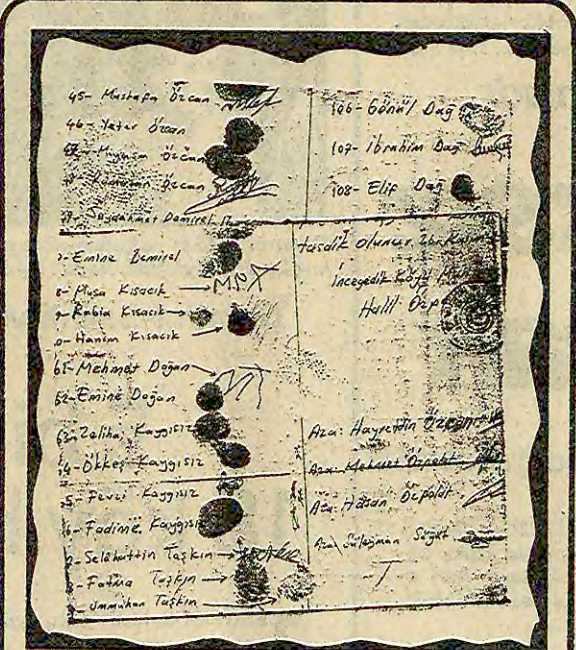 45- Mustafa Özcan
46- Yeter Özcan
Özcan
Özcan
Demirel
Emine Demirel
Musa Kısacık
Rabia Kısacık
Hanım Kısacık
61- Mehmet Doğan
62- Emine Doğan
63- Zeliha Kaygısız
4- Ökkeş Kaygısız
5- Fevzi Kaygısız
6- Fadime Kaygısız
Selahattin Taşkın
Fatma Taşkın
Ümmühan Taşkın
106- Gönül Dağ
107- İbrahim Dağ
108- Elif Dağ
tasdik olunur
İncegedik Köyü
Halil Özp
Aza: Hayrettin Özcan
Aza: Mehmet Özpolat
Aza: Hasan Özpolat
Aza: Süleyman Söğüt